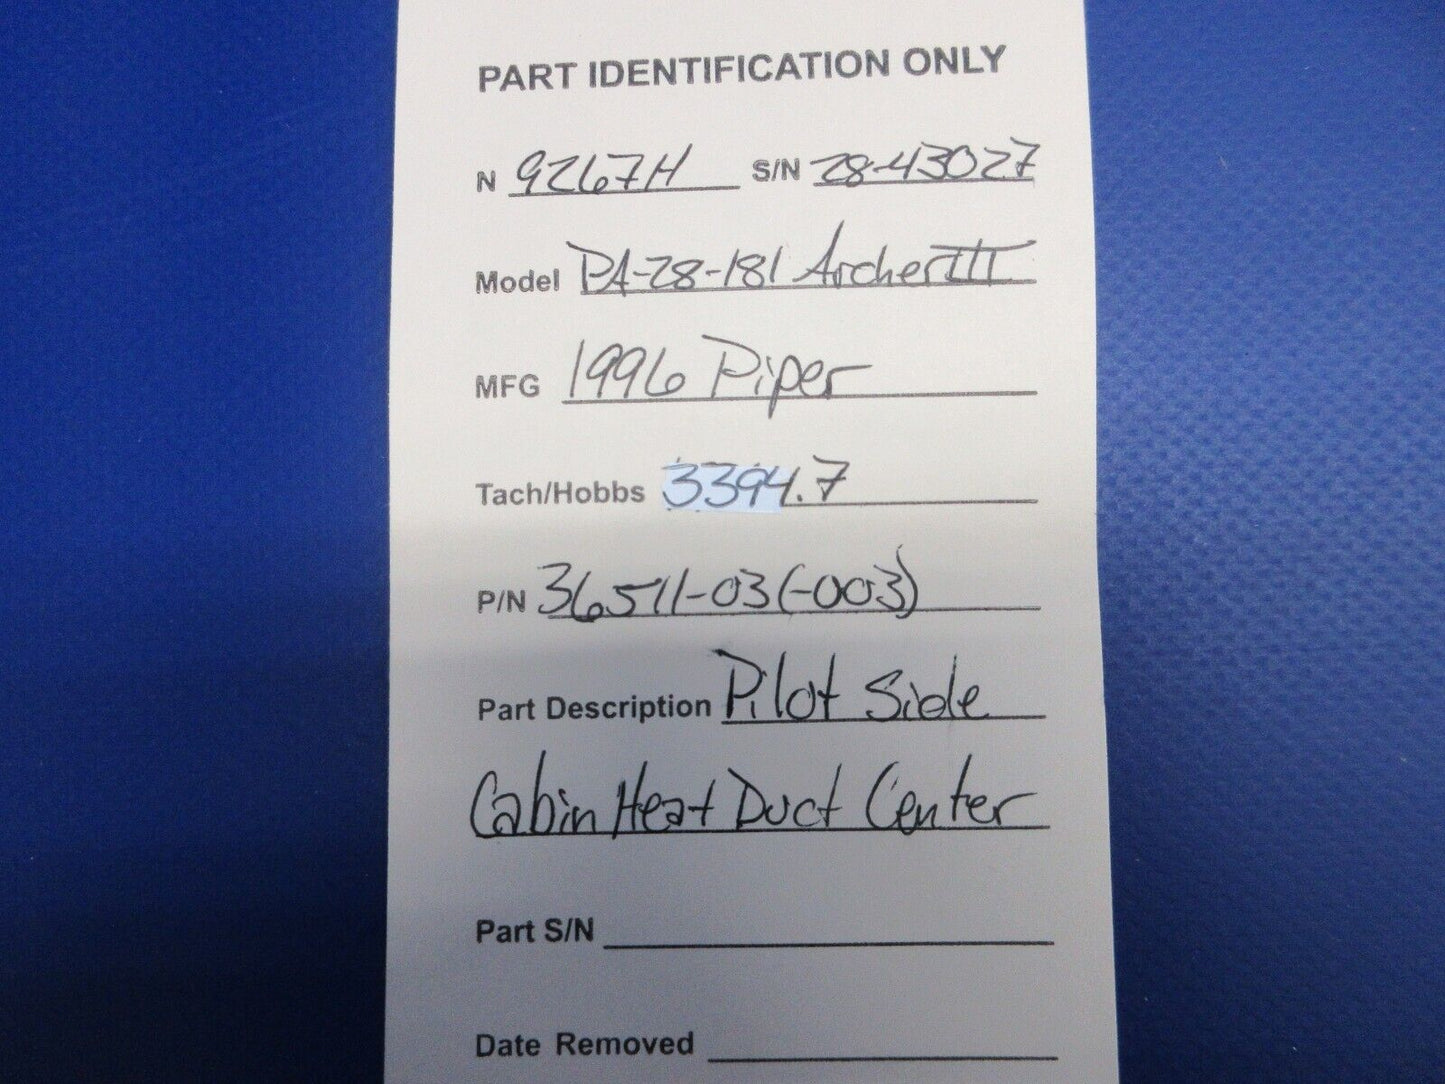 PART IDENTIFICATION ONLY
N 9267H S/N 28-43027
Model PA-28-181 Archer III
MFG 1996 Piper
Tach/Hobbs 3394.7
P/N 36511-03(-003)
Part Description Pilot Side
Cabin Heat Duct Center
Part S/N
Date Removed